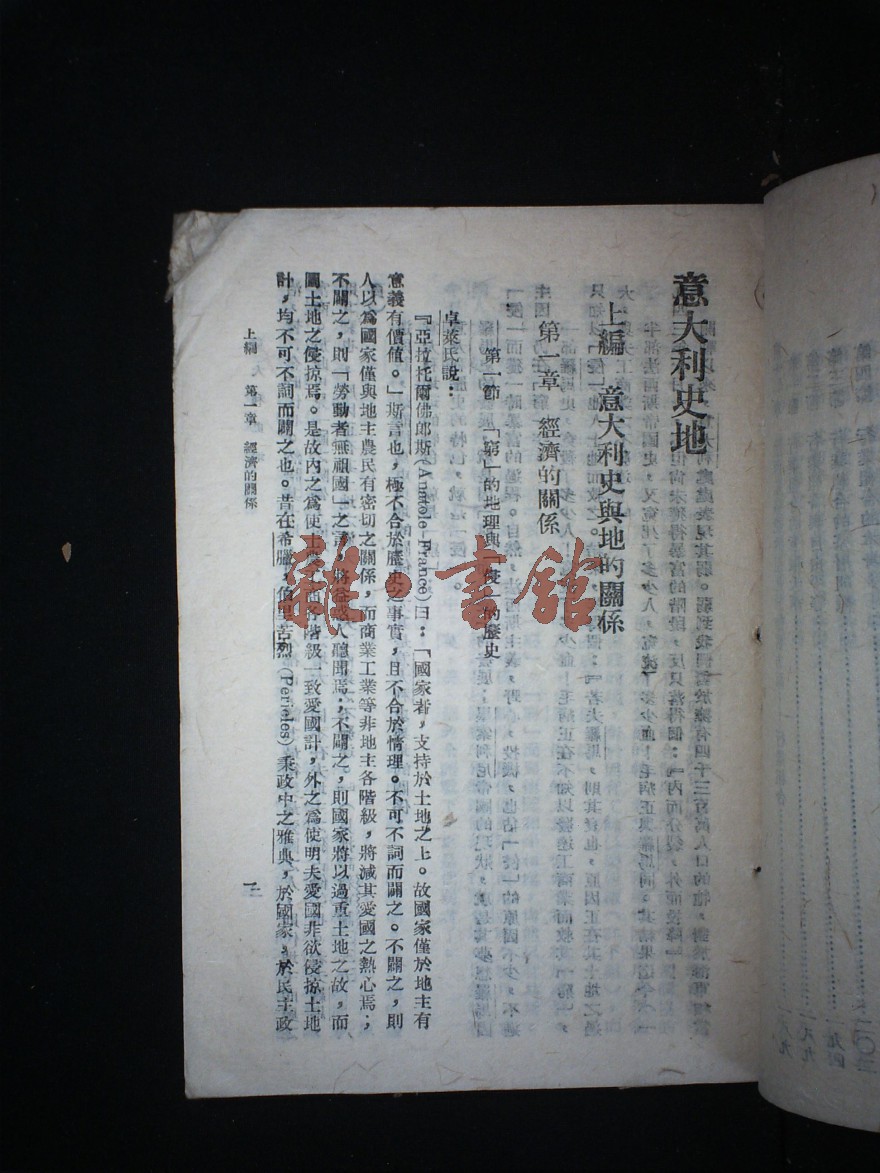 意大利史地
上編 意大利史與地的關係
第一章 經濟的關係
第一節 「窮」的地理與「侵」的歷史
卓萊氏說：
『亞拉托爾佛郎斯(Anatole-France)曰：「國家者，支持於土地之上。故國家僅於地主有
意義有價值。」斯言也，極不合於歷史之事實，且不合於情理。不可不詞而闢之。不闢之，則
人以為國家僅與地主農民有密切之關係，而商業工業等非地主各階級，將減其愛國之熱心焉；
不闢之，則「勞動者無祖國」之言，將益惑人聽聞焉；不闢之，則國家將以過重土地之故，而
圖土地之侵掠焉。是故內之為使士農工商各階級一致愛國計，外之為使明夫愛國非欲侵掠土地
計，均不可不詞而闢之也。昔在希臘，伯里苦烈(Pericles)秉政中之雅典，於國家，於民主政
上編 第一章 經濟的關係
雜·書館